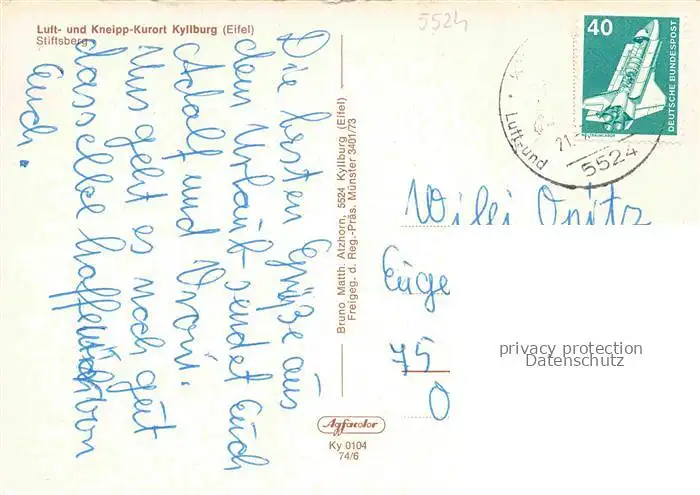 Luft- und Kneipp-Kurort Kyllburg (Eifel)
Stiftsberg
5524
Die besten Grüße aus
dem Urlaub sendet Euch
Adolf und Vroni.
Uns geht es noch gut
dasselbe hoffe von
Euch.
Bruno Matth. Atzhorn, 5524 Kyllburg (Eifel)
Freigeg. d. Reg.-Präs. Münster 3401/73
Agfacolor
Ky 0104
74/6
40
DEUTSCHE BUNDESPOST
Luft- und
21.
5524
Opitz
75
O
privacy protection
Datenschutz